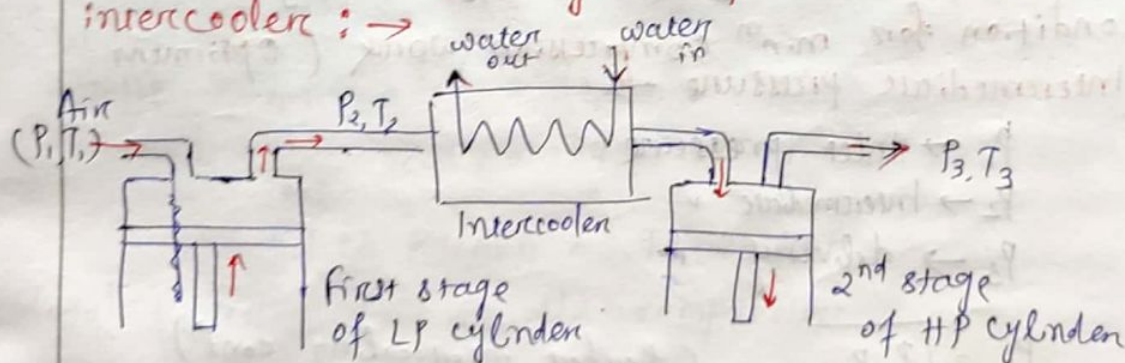 intercooler : →
water out
water in
Air
(P₁, T₁)
P₂, T₂
P₃, T₃
Intercooler
first stage
of LP cylinder
2nd stage
of HP cylinder